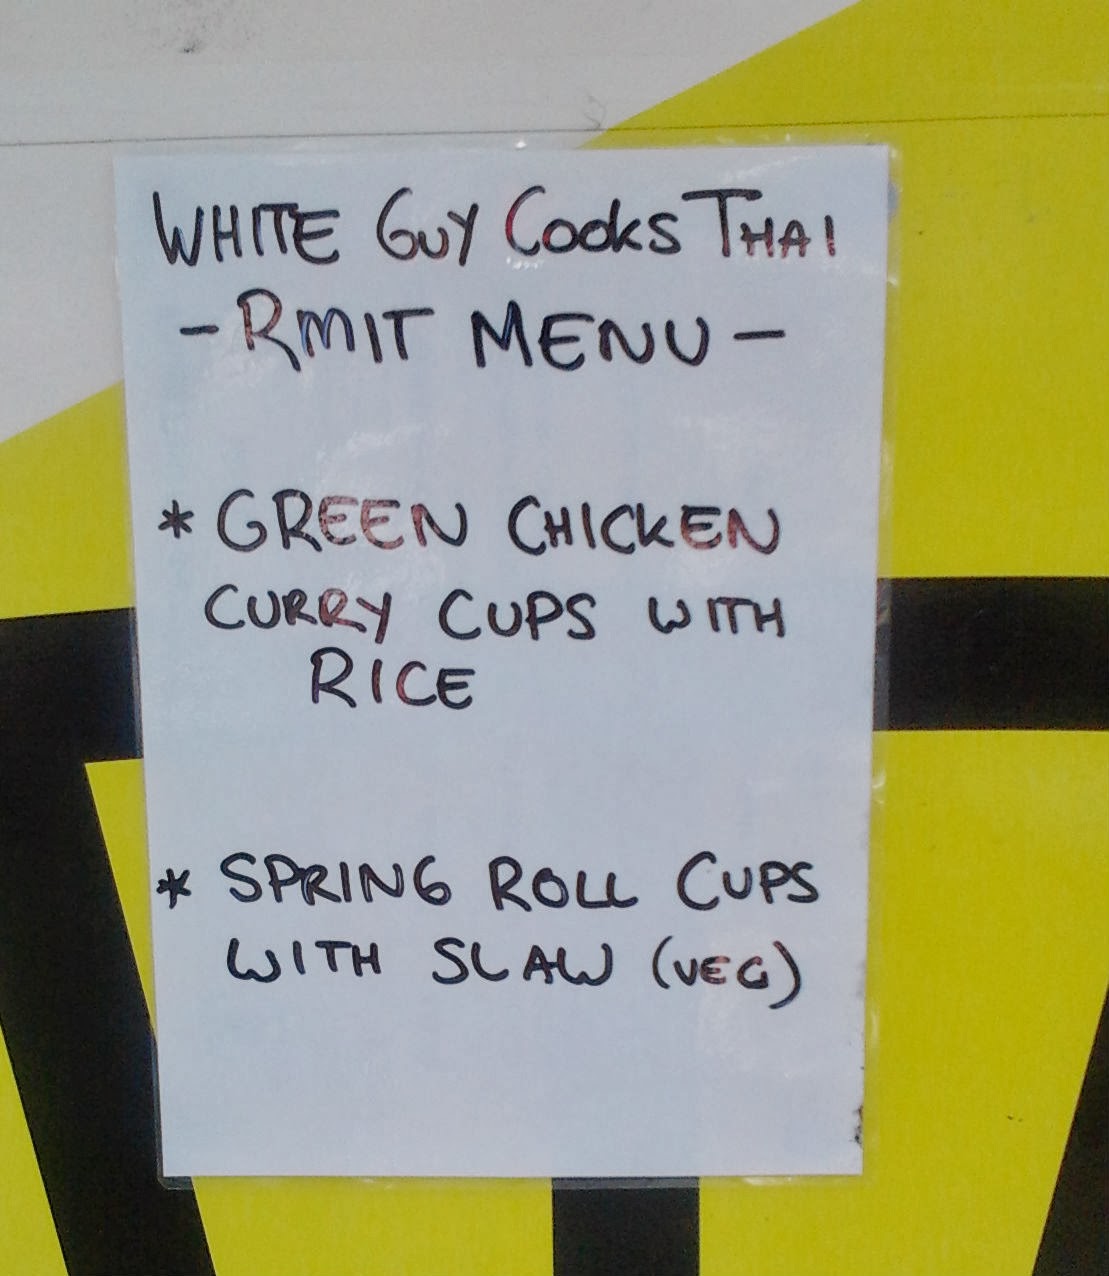 WHITE GUY COOKS THAI
- RMIT MENU -
* GREEN CHICKEN
CURRY CUPS WITH
RICE
* SPRING ROLL CUPS
WITH SLAW (VEG)